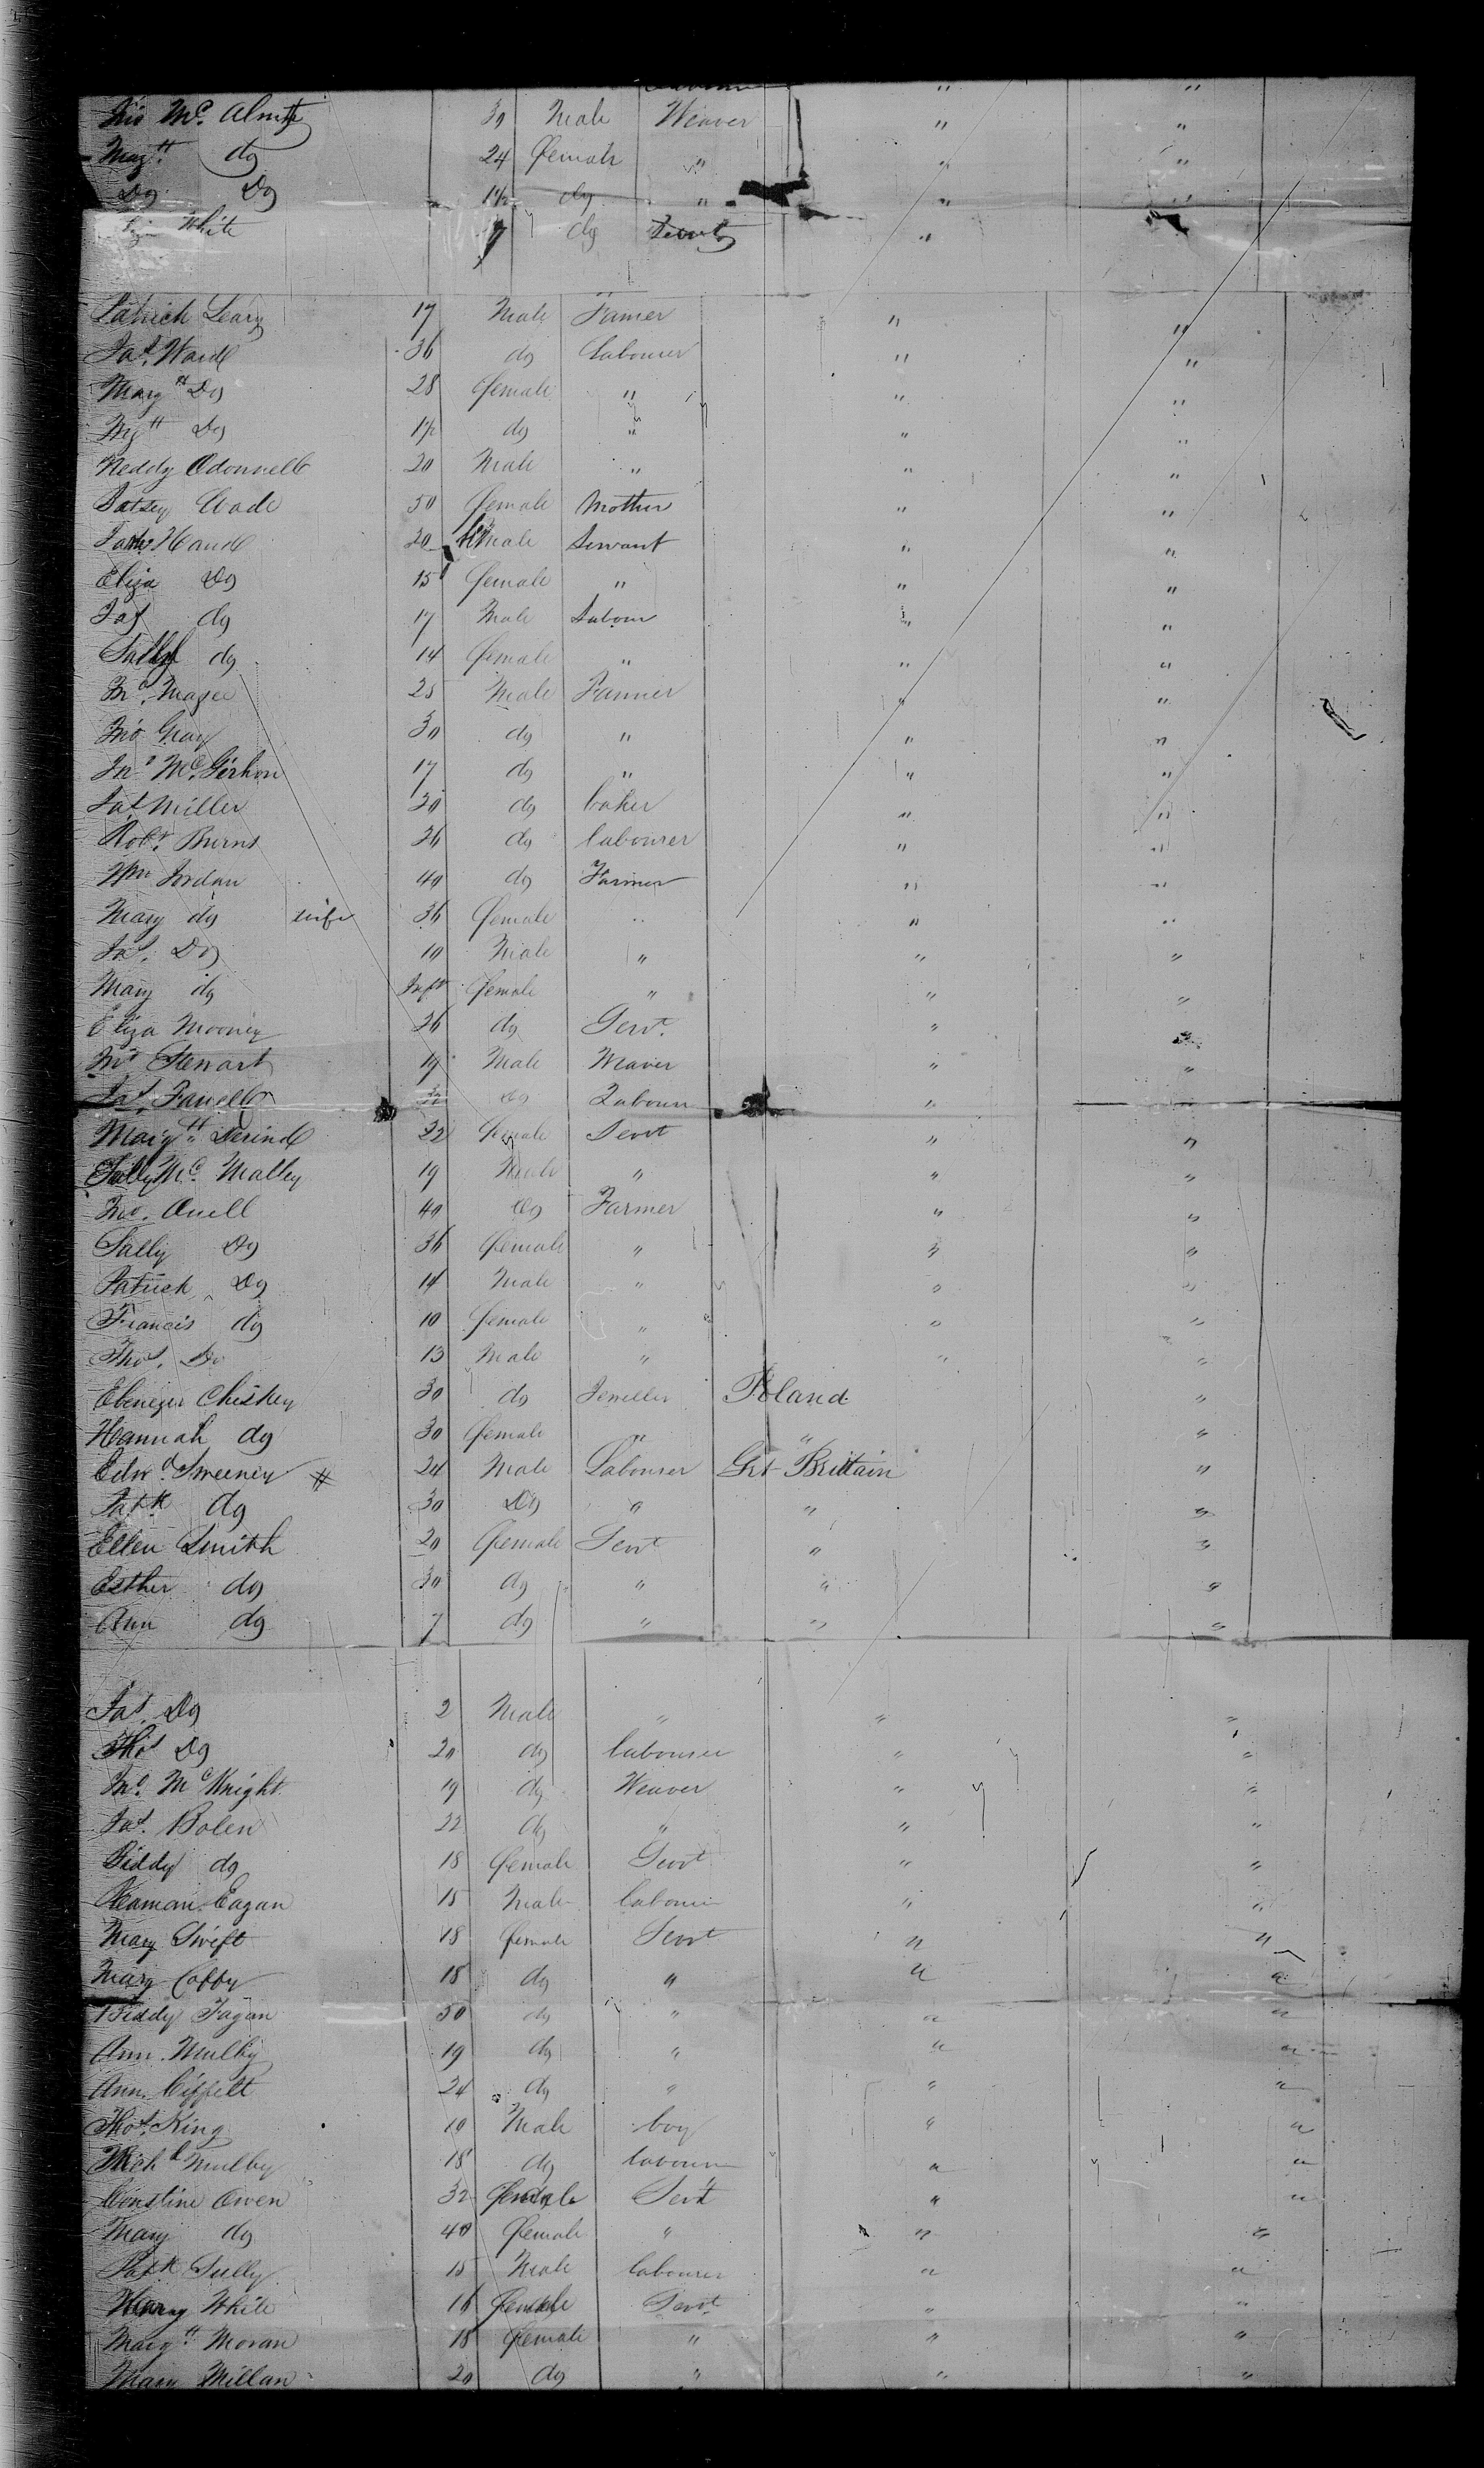 Jno Mc. 30 Male Weaver " "
Magtt. do 24 female " " "
Do Do 1½ do " " "
White 7 do Servt " "
Patrick Leary 17 Male Farmer " "
Jas. Ward 36 do Labourer " "
Margtt Do 28 female " " "
Mgtt Do 1½ do " " "
Neddy Odonnell 20 Male " " "
Patsey Wade 50 female Mother " "
Hand 20 Male Servant " "
Eliza Do 15 female " " "
Jas do 17 Male Labour " "
Sally do 14 female " " "
Jno. Magee 25 Male Farmer " "
Jno Gray 30 do " " "
Jno Mc. Girhon 17 do " " "
Jas Miller 30 do baker " "
Robt. Burns 26 do labourer " "
Wm Jordan 40 do Farmer " "
Mary do wife 36 female " " "
Jas. Do 10 Male " " "
Mary do Inft female " " "
Eliza Mooney 26 do Servt. " "
Jno Stewart 19 Male Weaver " "
Jas. do Labour " "
Margtt. 22 female Servt " "
Sally Mc. Malley 19 Male " " "
Jno. Quell 40 Do Farmer " "
Sally Do 36 female " " "
Patrick Do 14 Male " " "
Francis do 10 female " " "
Thos. Do 13 Male " " "
Ebenezer Chiskey 30 do Jeweller Poland "
Hannah do 30 female " " "
Edwd. Sweeney # 24 Male Labourer Grt Brittain "
Patk do 30 Do " " "
Ellen Smith 20 female Servt " "
Esther do 30 do " " "
Ann do 7 do " " "
Jas. Do 2 Male " " "
Thos Do 20 do labourer " "
Jno. McKnight 19 do Weaver " "
Jas. Bolen 22 do " " "
Biddy do 18 female Servt " "
Eagan 15 Male labourer " "
Mary Swift 18 female Servt " "
Mary Coffy 18 do " " "
Biddy Fagan 50 do " " "
Ann. Mulby 19 do " " "
Ann. 24 do " " "
Thos. King 10 Male boy " "
Michl Mulby 18 do labour " "
Owen 32 female Servt " "
Mary do 40 female " " "
Patk Sully 15 Male labourer " "
White 16 female Servt " "
Margtt. Moran 18 female " " "
Mary Millan 20 do " " "